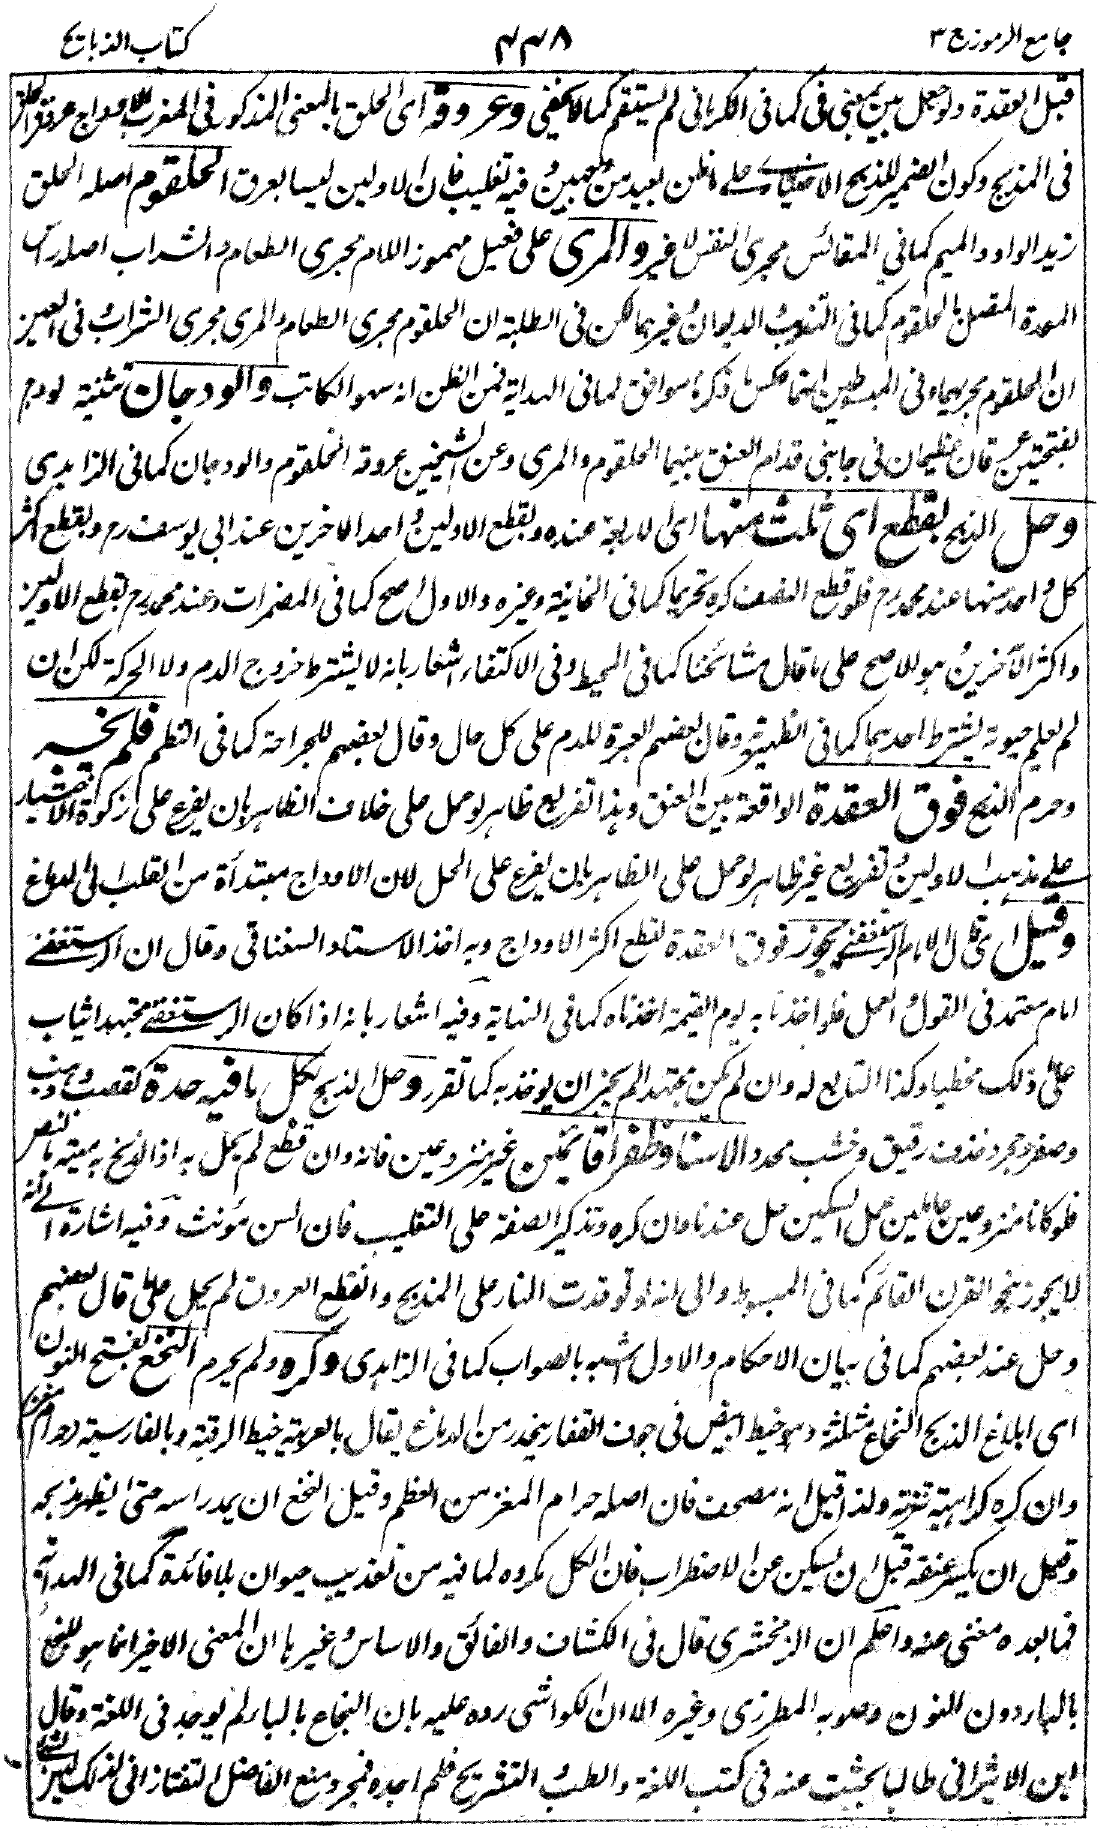 جامع الرموز ج ٣ ٤٤٨ كتاب الذبايح
قبل العقدة ولو جعل بين بمعنى في كما في الكرماني لم يستقم كما لا يخفى وعروقه اى الحلق بالمعنى المذكور في المغرب الاوداج عروق الحلق
في المذبح وكون الضمير للذبح الاختيارى على ما ظن بعيد من وجهين وفيه تغليب فان الاولين ليسا بعرق الحلقوم اصله الحلق
زيد الواو والميم كما في المقائس مجرى النفس لا غير والمرى على فعيل مهموز اللام مجرى الطعام والشراب اصله راس
المعدة المتصل بالحلقوم كما في التهذيب والديوان وغيرهما لكن في الطلبة ان الحلقوم مجرى الطعام والمرى مجرى الشراب وفي العين
ان الحلقوم مجريهما وفي المبسوطين انهما عكس ما ذكرنا موافق لما في الهداية فمن الظن انه سهو الكاتب والودجان تثنية ودج
بفتحتين عرقان عظيمان في جانبي قدام العنق بينهما الحلقوم والمرى وعن الشيخين عروقه الحلقوم والودجان كما في الزاهدى
وحل الذبح بقطع اى ثلث منها اى الاربعة عنده وبقطع الاولين واحد الاخرين عند ابي يوسف رح وبقطع اكثر
كل واحد منها عند محمد رح فلو قطع النصف كره تحريما كما في الخانية وغيره والاول اصح كما في المضمرات وعند محمد رح بقطع الاولين
واكثر الآخرين وهو الاصح على ما قال مشائخنا كما في المحيط وفي الاكتفاء اشعار بانه لا يشترط خروج الدم ولا الحركة لكن ان
لم يعلم حيوته يشترط احدهما كما في الظهيرية وقال بعضهم العبرة للدم على كل حال وقال بعضهم للجراحة كما في النظم فلم يجز
وحرم الذبح فوق العقدة الواقعة بين العنق وهذا تفريع ظاهر لو حمل على خلاف الظاهر بان يفرع على زكوة الاختيار
على مذهب الاولين وتفريع غير ظاهر لو حمل على الظاهر بان يفرع على الحل لان الاوداج مبتدأة من القلب الى الدماغ
وقيل اى قال الامام الرستغفني يجوز فوق العقدة لقطع اكثر الاوداج وبه اخذ الاستاد السغناقي وقال ان الرستغفني
امام معتمد في القول والعمل فلو اخذنا به يوم القيمة اخذناه كما في النهاية وفيه اشعار بانه اذا كان الرستغفني مجتهدا يثاب
على ذلك مخطيا وكذا التابع له وان لم يكن مجتهدا لم يجز ان يوخذ به كما تقرر وحل الذبح بكل ما فيه حدة كقصب وذهب
وصفر وحجر وخذف رقيق وخشب محدد الا سنا وظفرا قائمين غير منزوعين فانه وان قطع لم يحل به اذا الذبح به ميتة بالنص
فلو كانا منزوعين عاملين عمل السكين حل عندنا وان كره وتذكير الصفة على التغليب فان السن مونث وفيه اشارة الى انه
لا يجوز بنحو القرن القائم كما في المبسوط والى انه لو توقدت النار على المذبح وانقطع العروق لم يحل على ما قال بعضهم
وحل عند بعضهم كما في بيان الاحكام والاول اشبه بالصواب كما في الزاهدى وكره ولم يحرم النخع بفتح النون
اى ابلاغ الذبح النخاع مثلثة وهو خيط ابيض في جوف الفقار ينحدر من الدماغ يقال بالعربية خيط الرقبة وبالفارسية حرام مغز
وان كره كراهية تنزيه ولذا قيل انه مصحف فان اصله حرام المغز من العظم وقيل النخع ان يمد راسه حتى يظهر مذبحه
وقيل ان يكسر عنقه قبل ان يسكن عن الاضطراب فان الكل مكروه لما فيه من تعذيب حيوان بلا فائدة كما في الهداية
فما بعده مغنى عنه واعلم ان الزمخشرى قال في الكشاف والفائق والاساس وغيرها ان المعنى الاخير انما هو للبخع
بالباء دون النون وصوبه المطرزى وغيره الا ان الكواشى رده عليه بان البخاع بالباء لم يوجد في اللغة وقال
ابن الاثير انى طالما بحثت عنه في كتب اللغة والطب والتشريح فلم اجده فمجرد منع الفاضل التفتازانى لذلك ليس